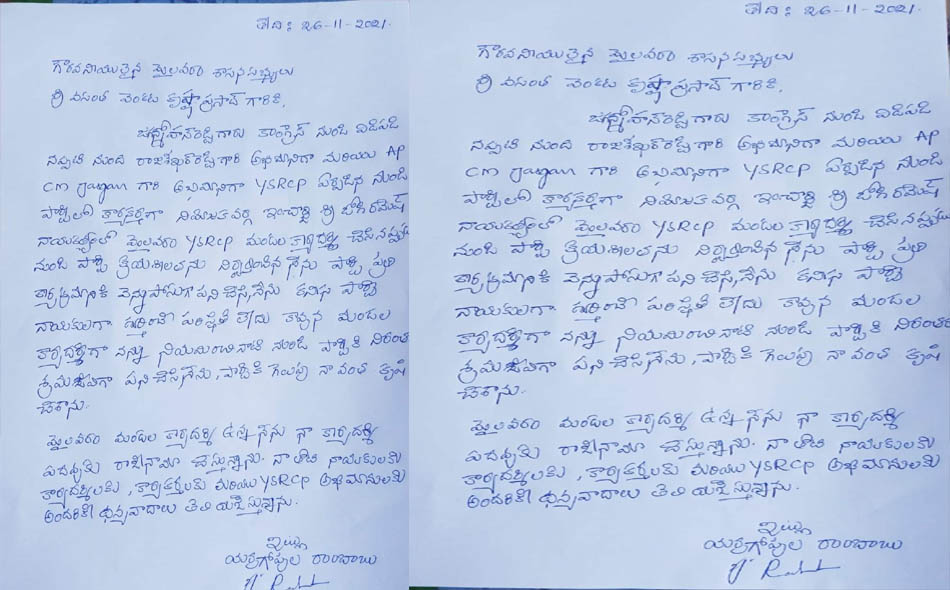 తేది: 26-11-2021.
గౌరవనీయులైన మైలవరం శాసనసభ్యులు
శ్రీ వసంత వెంకట కృష్ణప్రసాద్ గారికి,
జగన్మోహన్‌రెడ్డి గారు కాంగ్రెస్ నుండి విడిపడి
నప్పటి నుండి రాజశేఖర్‌రెడ్డి గారి అభిమానిగా మరియు AP
CM Jagan గారి అభిమానిగా YSRCP ఏర్పడిన నుండి
పార్టీలో కార్యకర్తగా నియోజకవర్గ ఇంచార్జి శ్రీ జోగి రమేష్
నాయకత్వంలో మైలవరం YSRCP మండల కార్యదర్శి చేసినప్పటి
నుండి పార్టీ క్రియాశీలతను నిర్వర్తించిన నేను పార్టీ ప్రతి
కార్యక్రమానికి వెన్నుపోసుగా పని చేసి, నేను కనీస పార్టీ
నాయకులుగా గుర్తించే పరిస్థితి లేదు తావున మండల
కార్యదర్శిగా నన్ను నియమించినాటి నుండి పార్టీకి నిరంతర
శ్రమజీవిగా పని చేసి నేను, పార్టీకి గెలుపు నా వంత కృషి
చేశాను.
మైలవరం మండల కార్యదర్శి ఉన్న నేను నా కార్యదర్శి
పదవులకు రాజీనామా చేస్తున్నాను. నా తోటి నాయకులకు
కార్యదర్శులకు, కార్యకర్తలకు మరియు YSRCP అభిమానులకు
అందరికీ ధన్యవాదాలు తెలియజేస్తున్నాను.
ఇట్లు
యర్రగోపుల రాంబాబు
తేది: 26-11-2021.
గౌరవనీయులైన మైలవరం శాసనసభ్యులు
శ్రీ వసంత వెంకట కృష్ణప్రసాద్ గారికి,
జగన్మోహన్‌రెడ్డి గారు కాంగ్రెస్ నుండి విడిపడి
నప్పటి నుండి రాజశేఖర్‌రెడ్డి గారి అభిమానిగా మరియు AP
CM Jagan గారి అభిమానిగా YSRCP ఏర్పడిన నుండి
పార్టీలో కార్యకర్తగా నియోజకవర్గ ఇంచార్జి శ్రీ జోగి రమేష్
నాయకత్వంలో మైలవరం YSRCP మండల కార్యదర్శి చేసినప్పటి
నుండి పార్టీ క్రియాశీలతను నిర్వర్తించిన నేను పార్టీ ప్రతి
కార్యక్రమానికి వెన్నుపోసుగా పని చేసి, నేను కనీస పార్టీ
నాయకులుగా గుర్తించే పరిస్థితి లేదు తావున మండల
కార్యదర్శిగా నన్ను నియమించినాటి నుండి పార్టీకి నిరంతర
శ్రమజీవిగా పని చేసి నేను, పార్టీకి గెలుపు నా వంత కృషి
చేశాను.
మైలవరం మండల కార్యదర్శి ఉన్న నేను నా కార్యదర్శి
పదవులకు రాజీనామా చేస్తున్నాను. నా తోటి నాయకులకు
కార్యదర్శులకు, కార్యకర్తలకు మరియు YSRCP అభిమానులకు
అందరికీ ధన్యవాదాలు తెలియజేస్తున్నాను.
ఇట్లు
యర్రగోపుల రాంబాబు